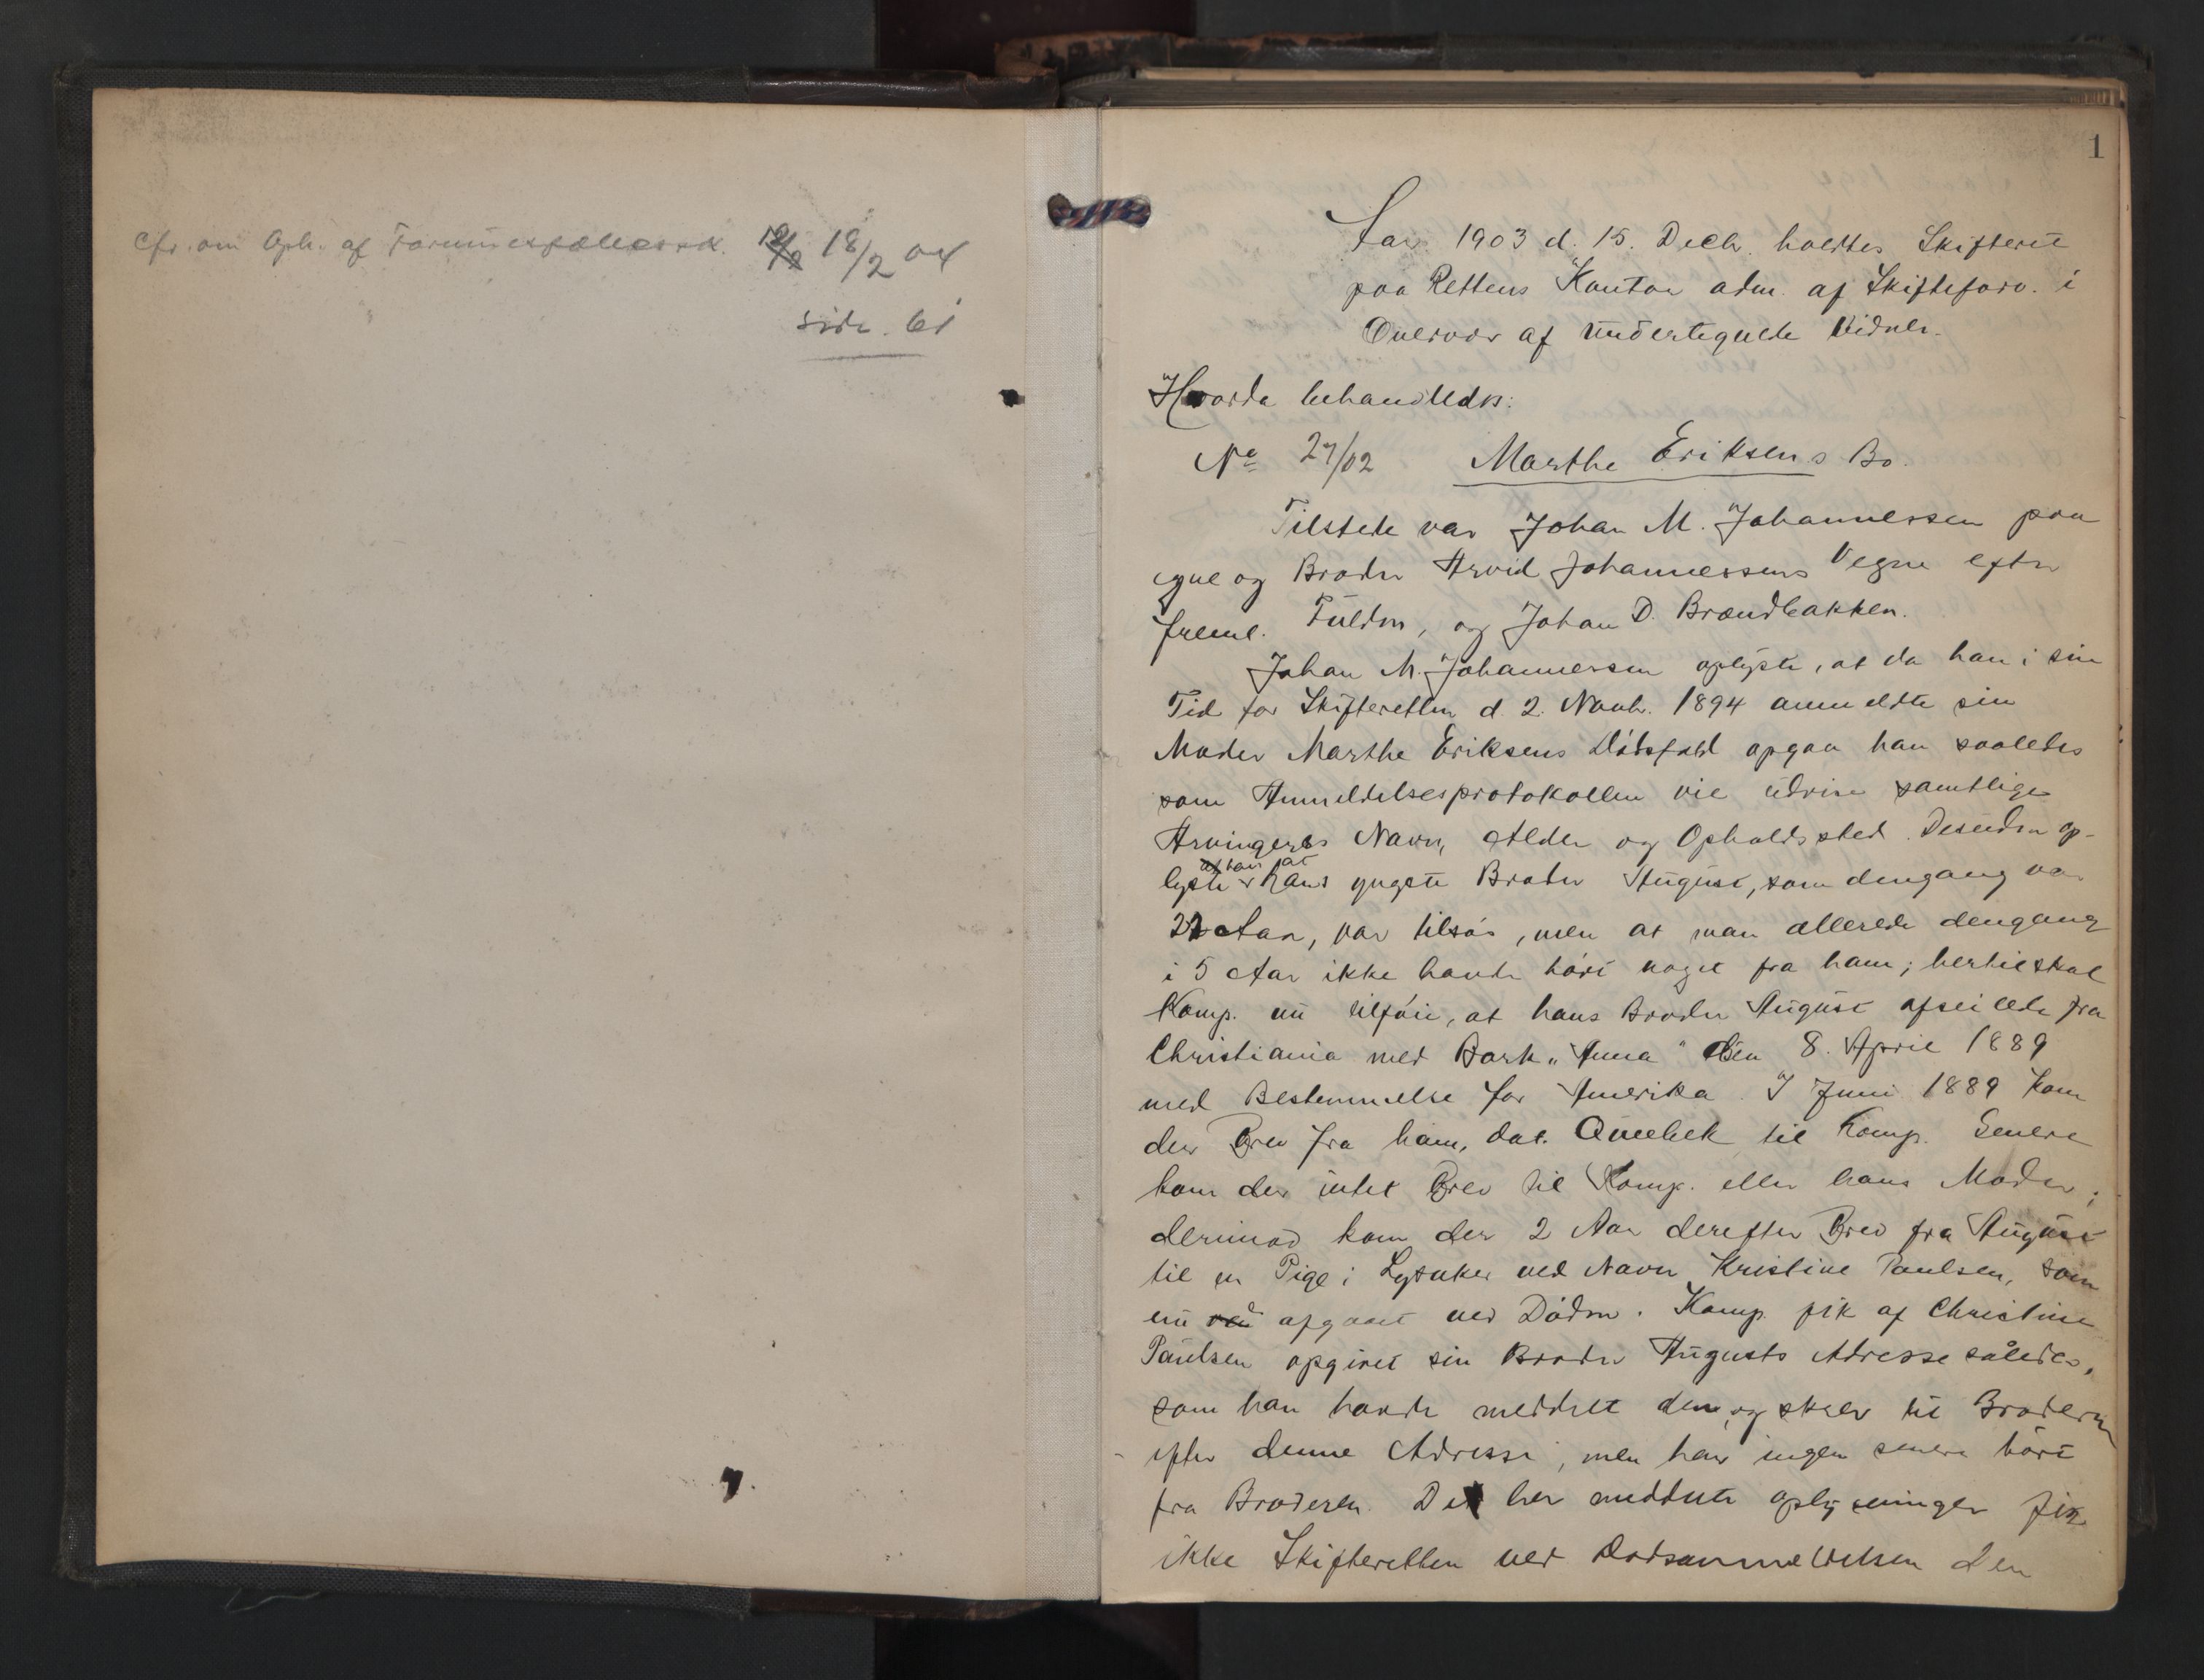 Cfr. om Oph. af Formuesfællessk. 18/2 04
side. 61
1
Aar 1903 d. 15. Decb. holdtes Skifteret
paa Rettens Kontor adm. af Skifteforv. i
Overvær af undertegnede Vidner.
Hvorda behandledes:
No 27/02 Marthe Eriksens Bo.
Tilstede var Johan M. Johannessen paa
egne og Broder Arvid Johannessens Vegne efter
freml. Fuldm, og Johan D. Brændbakken.
Johan M. Johannessen oplyste, at da han i sin
Tid for Skifteretten d. 2. Novb. 1894 anmeldte sin
Moder Marthe Eriksens Dødsfald opgav han saaledes
som Anmeldelsesprotokollen vil udvise samtlige
Arvingers Navn, Alder og Opholdssted. Desuden op-
lyste han at hans yngste Broder August, som dengang var
22 Aar, var tilsøs, men at man allerede dengang
i 5 Aar ikke havde hørt noget fra ham; hertil skal
Komp. nu tilføie, at hans Broder August afseilede fra
Christiania med Bark „Anna" den 8. April 1889
med Bestemmelse for Amerika. I Juni 1889 kom
der Brev fra ham, dat. Quebek til Komp. Senere
kom der intet Brev til Komp. eller hans Moder;
derimod kom der 2 Aar derefter Brev fra August
til en Pige i Lysaker ved Navn Kristine Paulsen, som
nu er afgaaet ved Døden. Komp. fik af Christine
Paulsen opgivet sin Broder Augusts Adresse således,
som han havde meddelt den, og skrev til Broderen
efter denne Adresse, men har ingen senere hørt
fra Broderen. De her meddelte oplysninger fik
ikke Skifteretten ved Dødsanmeldelsen den